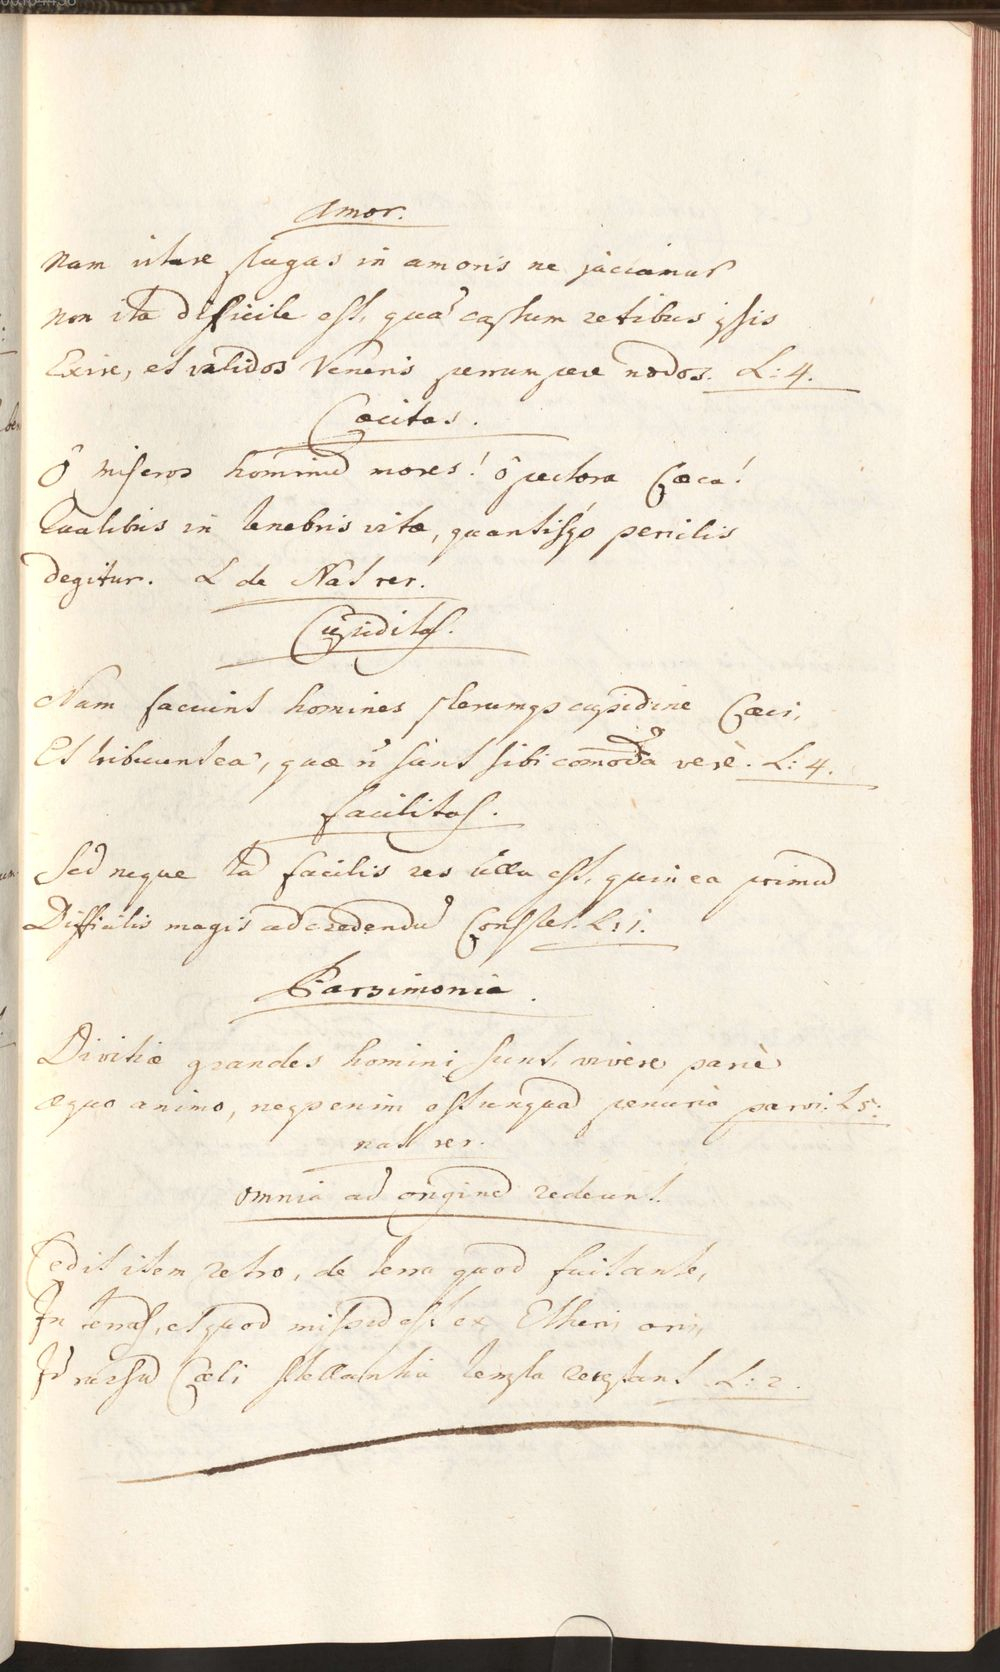 Amor.
Nam vitare plagas in amoris ne jaciamur
non ita difficile est, quã captum retibus ipsis
Exire, et validos Veneris perrumpere nodos. L: 4.
Cæcitas.
Ô miseros hominũ mores! ô pectora Cæca!
Qualibus in tenebris vitæ, quantisq̃ periclis
degitur. L de Nat rer.
Cupiditas.
Nam faciunt homines plerumq̃ cupidine Cæci,
Et tribuunt ea, quæ ñ sunt sibi comoda verè. L: 4.
facilitas.
Sed neque tã facilis res ulla est, quin ea primũ
Difficilis magis ad credendũ Constet. L: 1.
Parsimonia.
Divitiæ grandes homini sunt, vivere parcè
æquo animo, neq̃ enim est unquã penuria parvi. L 5:
nat rer.
omnia ad originẽ redeunt.
Cedit item retro, de terra quod fuit ante,
In terras, et quod missũ est ex Etheris oris,
Id rursũ Cæli stellantia templa receptant L: 2.